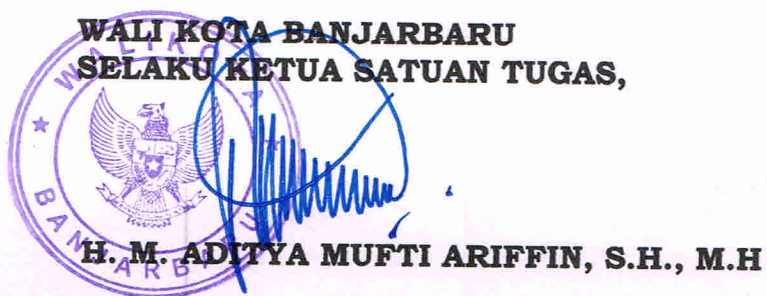 WALI KOTA BANJARBARU
SELAKU KETUA SATUAN TUGAS,
WALIKOTA
BANJARBARU
H. M. ADITYA MUFTI ARIFFIN, S.H., M.H